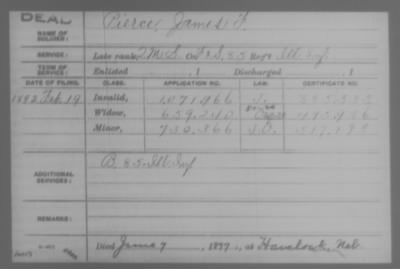 DEAD
NAME OF SOLDIER: Pierce, James F.
SERVICE: Late rank, Q.M.S. Co. F&S, 85 Reg't Ill. Inf.
TERM OF SERVICE: Enlisted , 1 Discharged , 1
DATE OF FILING. CLASS. APPLICATION NO. LAW. CERTIFICATE NO.
1892 Feb 19 Invalid,
Widow, 659,240
Minor, 730,866
ADDITIONAL SERVICES: B. 85 Ill. Inf
REMARKS:
Died June 7, 1897, at Havelock, Neb.